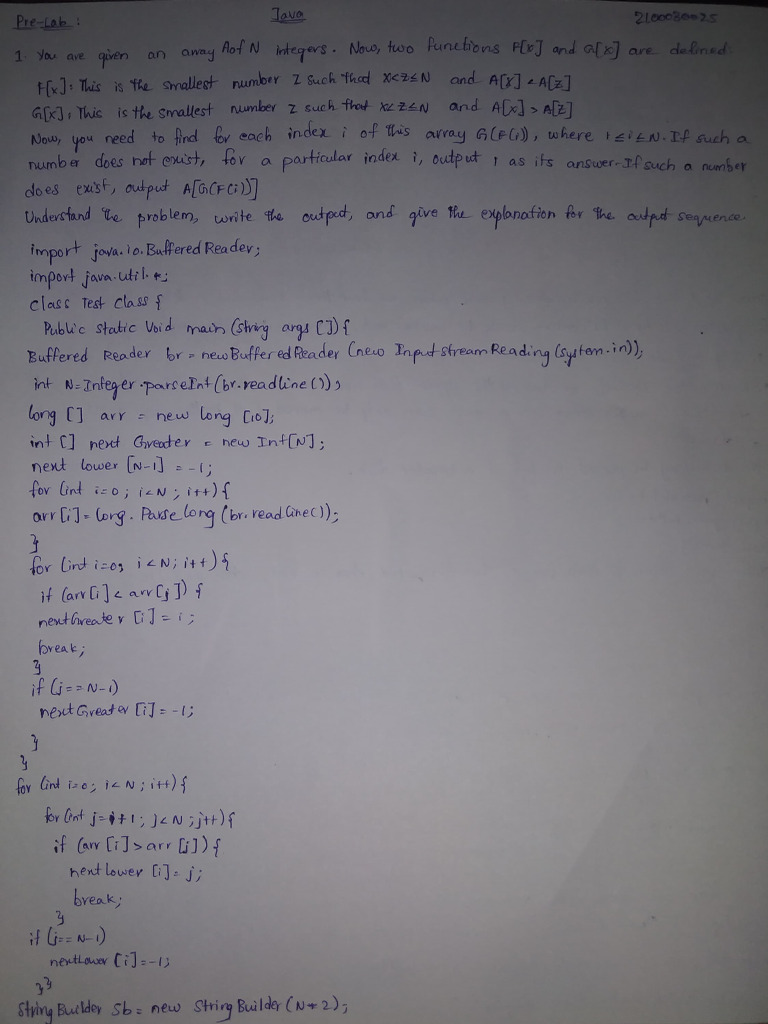 Pre-Lab :
Java
2100030025
1. You are given an array A of N integers. Now, two functions F[x] and G[x] are defined:
F[x]: This is the smallest number z such that x<z≤N and A[x] <A[z]
G[x]: This is the smallest number z such that x<z≤N and A[x] > A[z]
Now, you need to find for each index i of this array G(F(i)), where 1≤i≤N. If such a
number does not exist, for a particular index i, output 1 as its answer. If such a number
does exist, output A[G(F(i))]
Understand the problem, write the output, and give the explanation for the output sequence.
import java.io.Buffered Reader;
import java.util.*;
class Test Class {
Public static Void main (string args []) {
Buffered Reader br = new Buffered Reader (new Input stream Reading (system.in));
int N = Integer.parseInt (br.readline ());
long [] arr = new long [10];
int [] next Greater = new Int[N];
next lower [N-1] = -1;
for (int i=0; i<N; i++) {
arr [i] = long. Parse long (br.readline());
}
for (int i=0; i<N; i++) {
if (arr[i] < arr[j]) {
nextGreater [i] = i;
break;
}
if (j==N-1)
nextGreater [i] = -1;
}
}
for (int i=0; i<N; i++) {
for (int j=i+1; j<N; j++) {
if (arr [i] > arr [j]) {
next lower [i] = j;
break;
}
if (j== N-1)
nextlower [i] = -1;
}}
String Builder Sb = new String Builder (N+2);